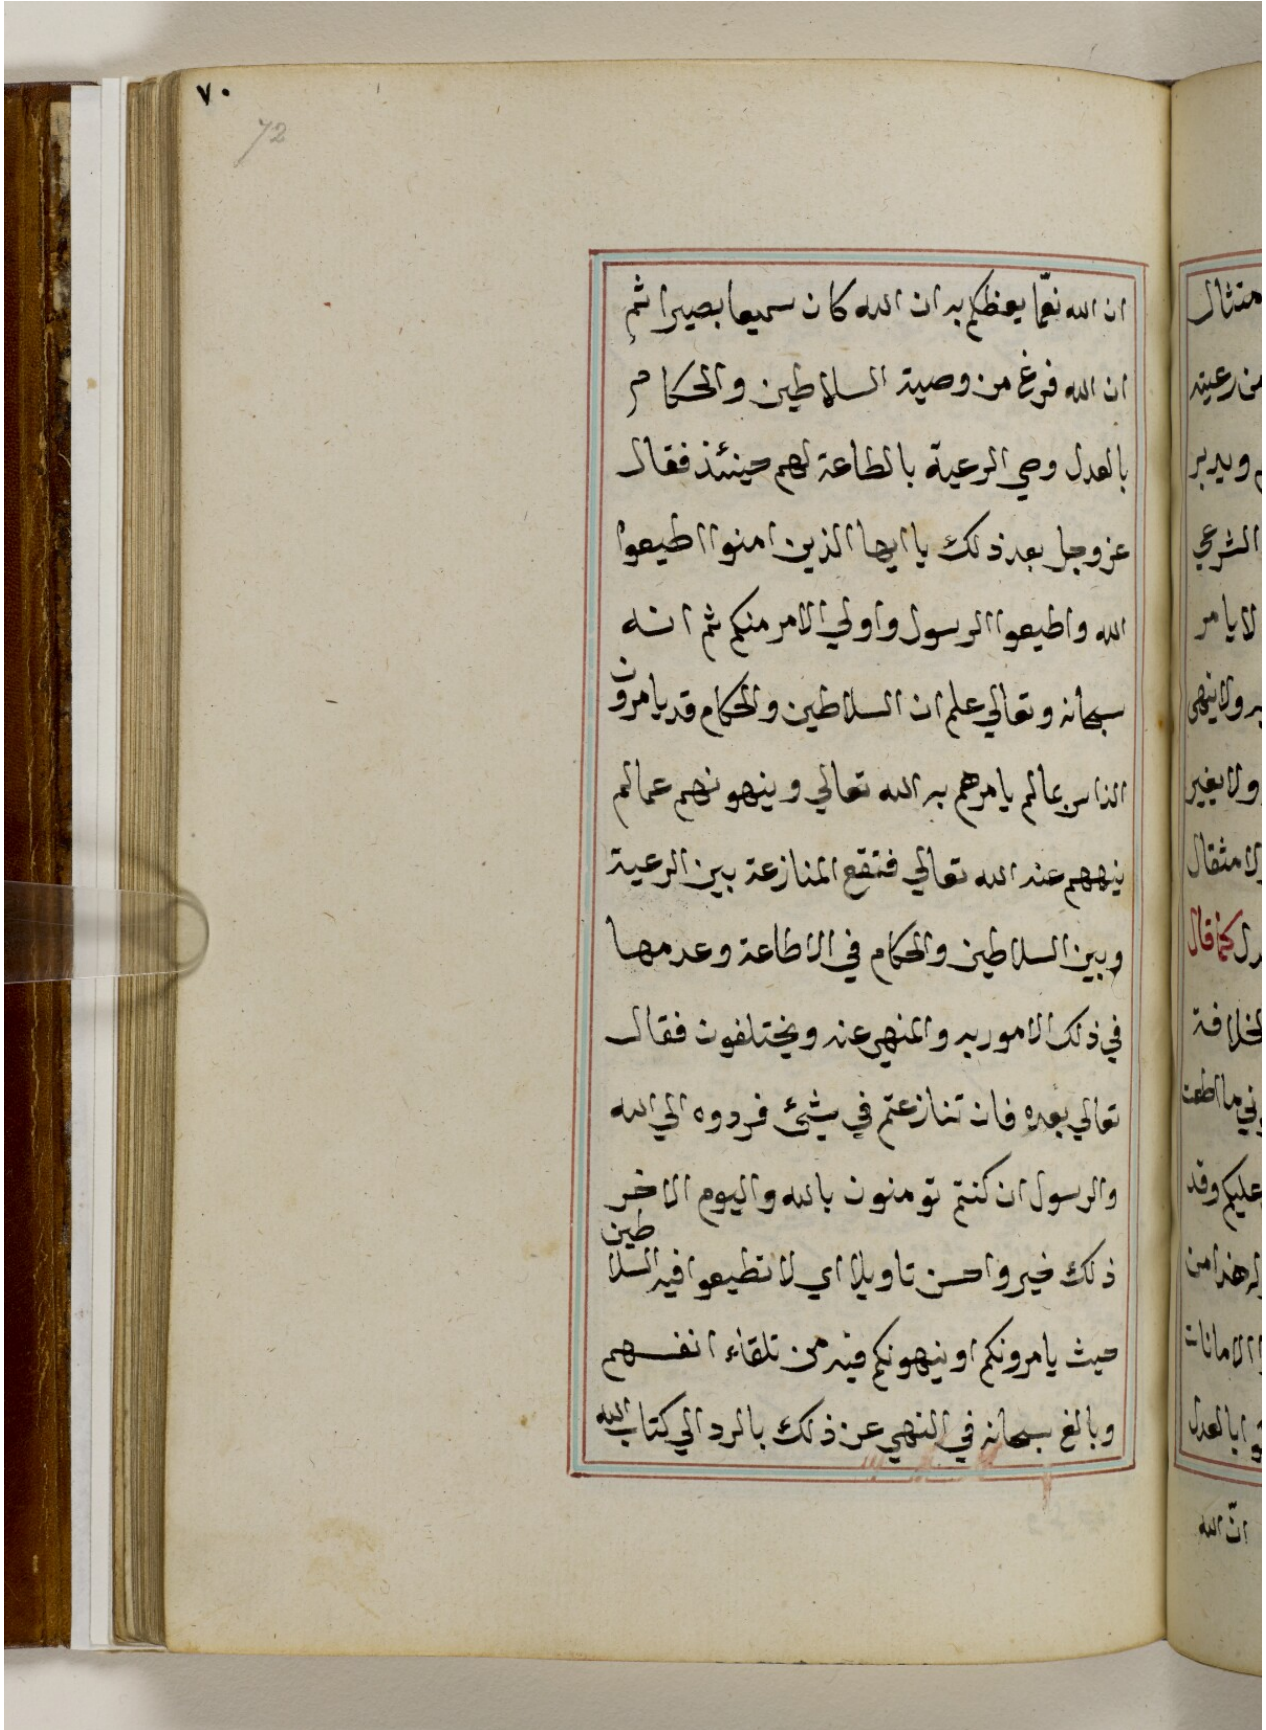 ٧٠
72
ان الله نعّما يعظكم به ان الله كان سميعا بصيرا ثم
ان الله فرغ من وصية السلاطين والحكام
بالعدل وصي الرعية بالطاعة لهم حينئذ فقال
عز وجل بعد ذلك يا ايها الذين امنوا اطيعوا
الله واطيعوا الرسول واولي الامر منكم ثم انه
سبحانه وتعالي علم ان السلاطين والحكام قد يامرون
الناس بما لم يامرهم به الله تعالي وينهونهم عما لم
ينههم عنه الله تعالي فتقع المنازعة بين الرعية
وبين السلاطين والحكام في الاطاعة وعدمها
في ذلك الامور به والمنهي عنه ويختلفون فقال
تعالي بعده فان تنازعتم في شيئ فردوه الي الله
والرسول ان كنتم تومنون بالله واليوم الاخر
ذلك خير واحسن تاويلا اي لا تطيعوا فيه السلاطين
حيث يامرونكم او ينهونكم فيه من تلقاء انفسهم
وبالغ سبحانه في النهي عن ذلك بالرد الي كتاب الله
متثال
من رعيته
ويدبر
الشرعي
لا يامر
به ولا ينهى
ولا يغير
لا مثقال
كما قال
لخلافة
وني ما اطعت
عليكم وقد
له هذا من
الامانات
وا بالعدل
انّ الله